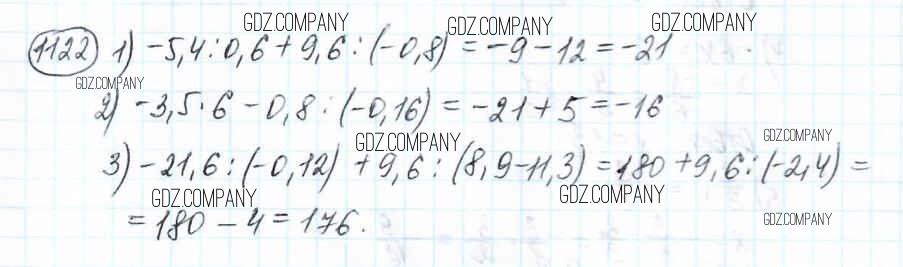 GDZ.COMPANY GDZ.COMPANY GDZ.COMPANY
1122 1) -5,4 : 0,6 + 9,6 : (-0,8) = -9 - 12 = -21
GDZ.COMPANY
2) -3,5 · 6 - 0,8 : (-0,16) = -21 + 5 = -16
GDZ.COMPANY GDZ.COMPANY
3) -21,6 : (-0,12) + 9,6 : (8,9 - 11,3) = 180 + 9,6 : (-2,4) =
GDZ.COMPANY GDZ.COMPANY
= 180 - 4 = 176.
GDZ.COMPANY